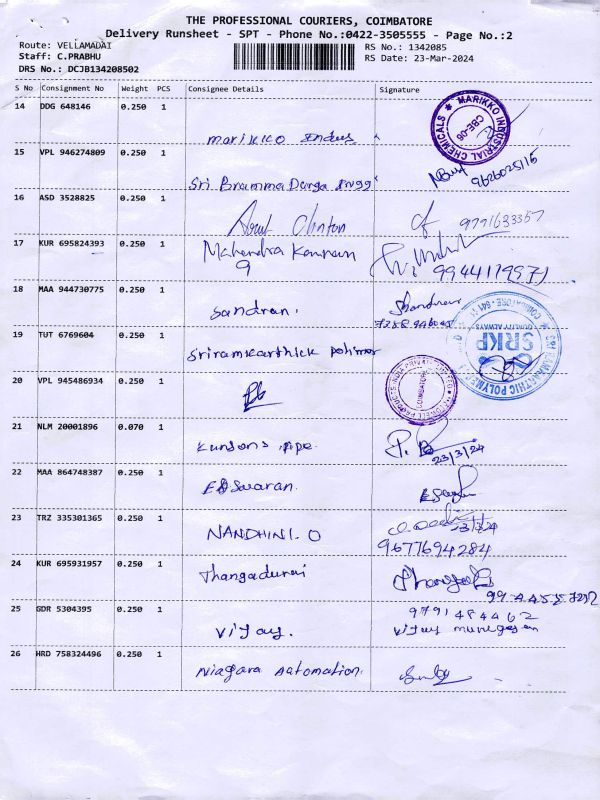 THE PROFESSIONAL COURIERS, COIMBATORE
Delivery Runsheet - SPT - Phone No.:0422-3505555 - Page No.:2
Route: VELLAMADAI
RS No.: 1342085
Staff: C.PRABHU
RS Date: 23-Mar-2024
DRS No.: DCJB134208502
S No Consignment No Weight PCS Consignee Details Signature
14 DDG 648146 0.250 1
MARIKKO INDUSTRIAL CHEMICALS
CBE-06
marikko Indus
15 VPL 946274809 0.250 1
Sri Bramma Durga
9626025115
16 ASD 3528825 0.250 1
Clinton
9791633357
17 KUR 695824393 0.250 1
Mahendra Kannan
9
9944119971
18 MAA 944730775 0.250 1
Sandran.
19 TUT 6769604 0.250 1
Sriramkarthick polimer
SRKP
QUALITY ALWAYS
20 VPL 945486934 0.250 1
COIMBATORE
21 NLM 20001896 0.070 1
Kunsons pipe
23/3/24
22 MAA 864748387 0.250 1
23 TRZ 335301365 0.250 1
NANDHINI. O
9677694284
24 KUR 695931957 0.250 1
Thangadurai
25 GDR 5304395 0.250 1
9791484462
Vijay.
Vijay murugesan
26 HRD 758324496 0.250 1
Niagara Automation.